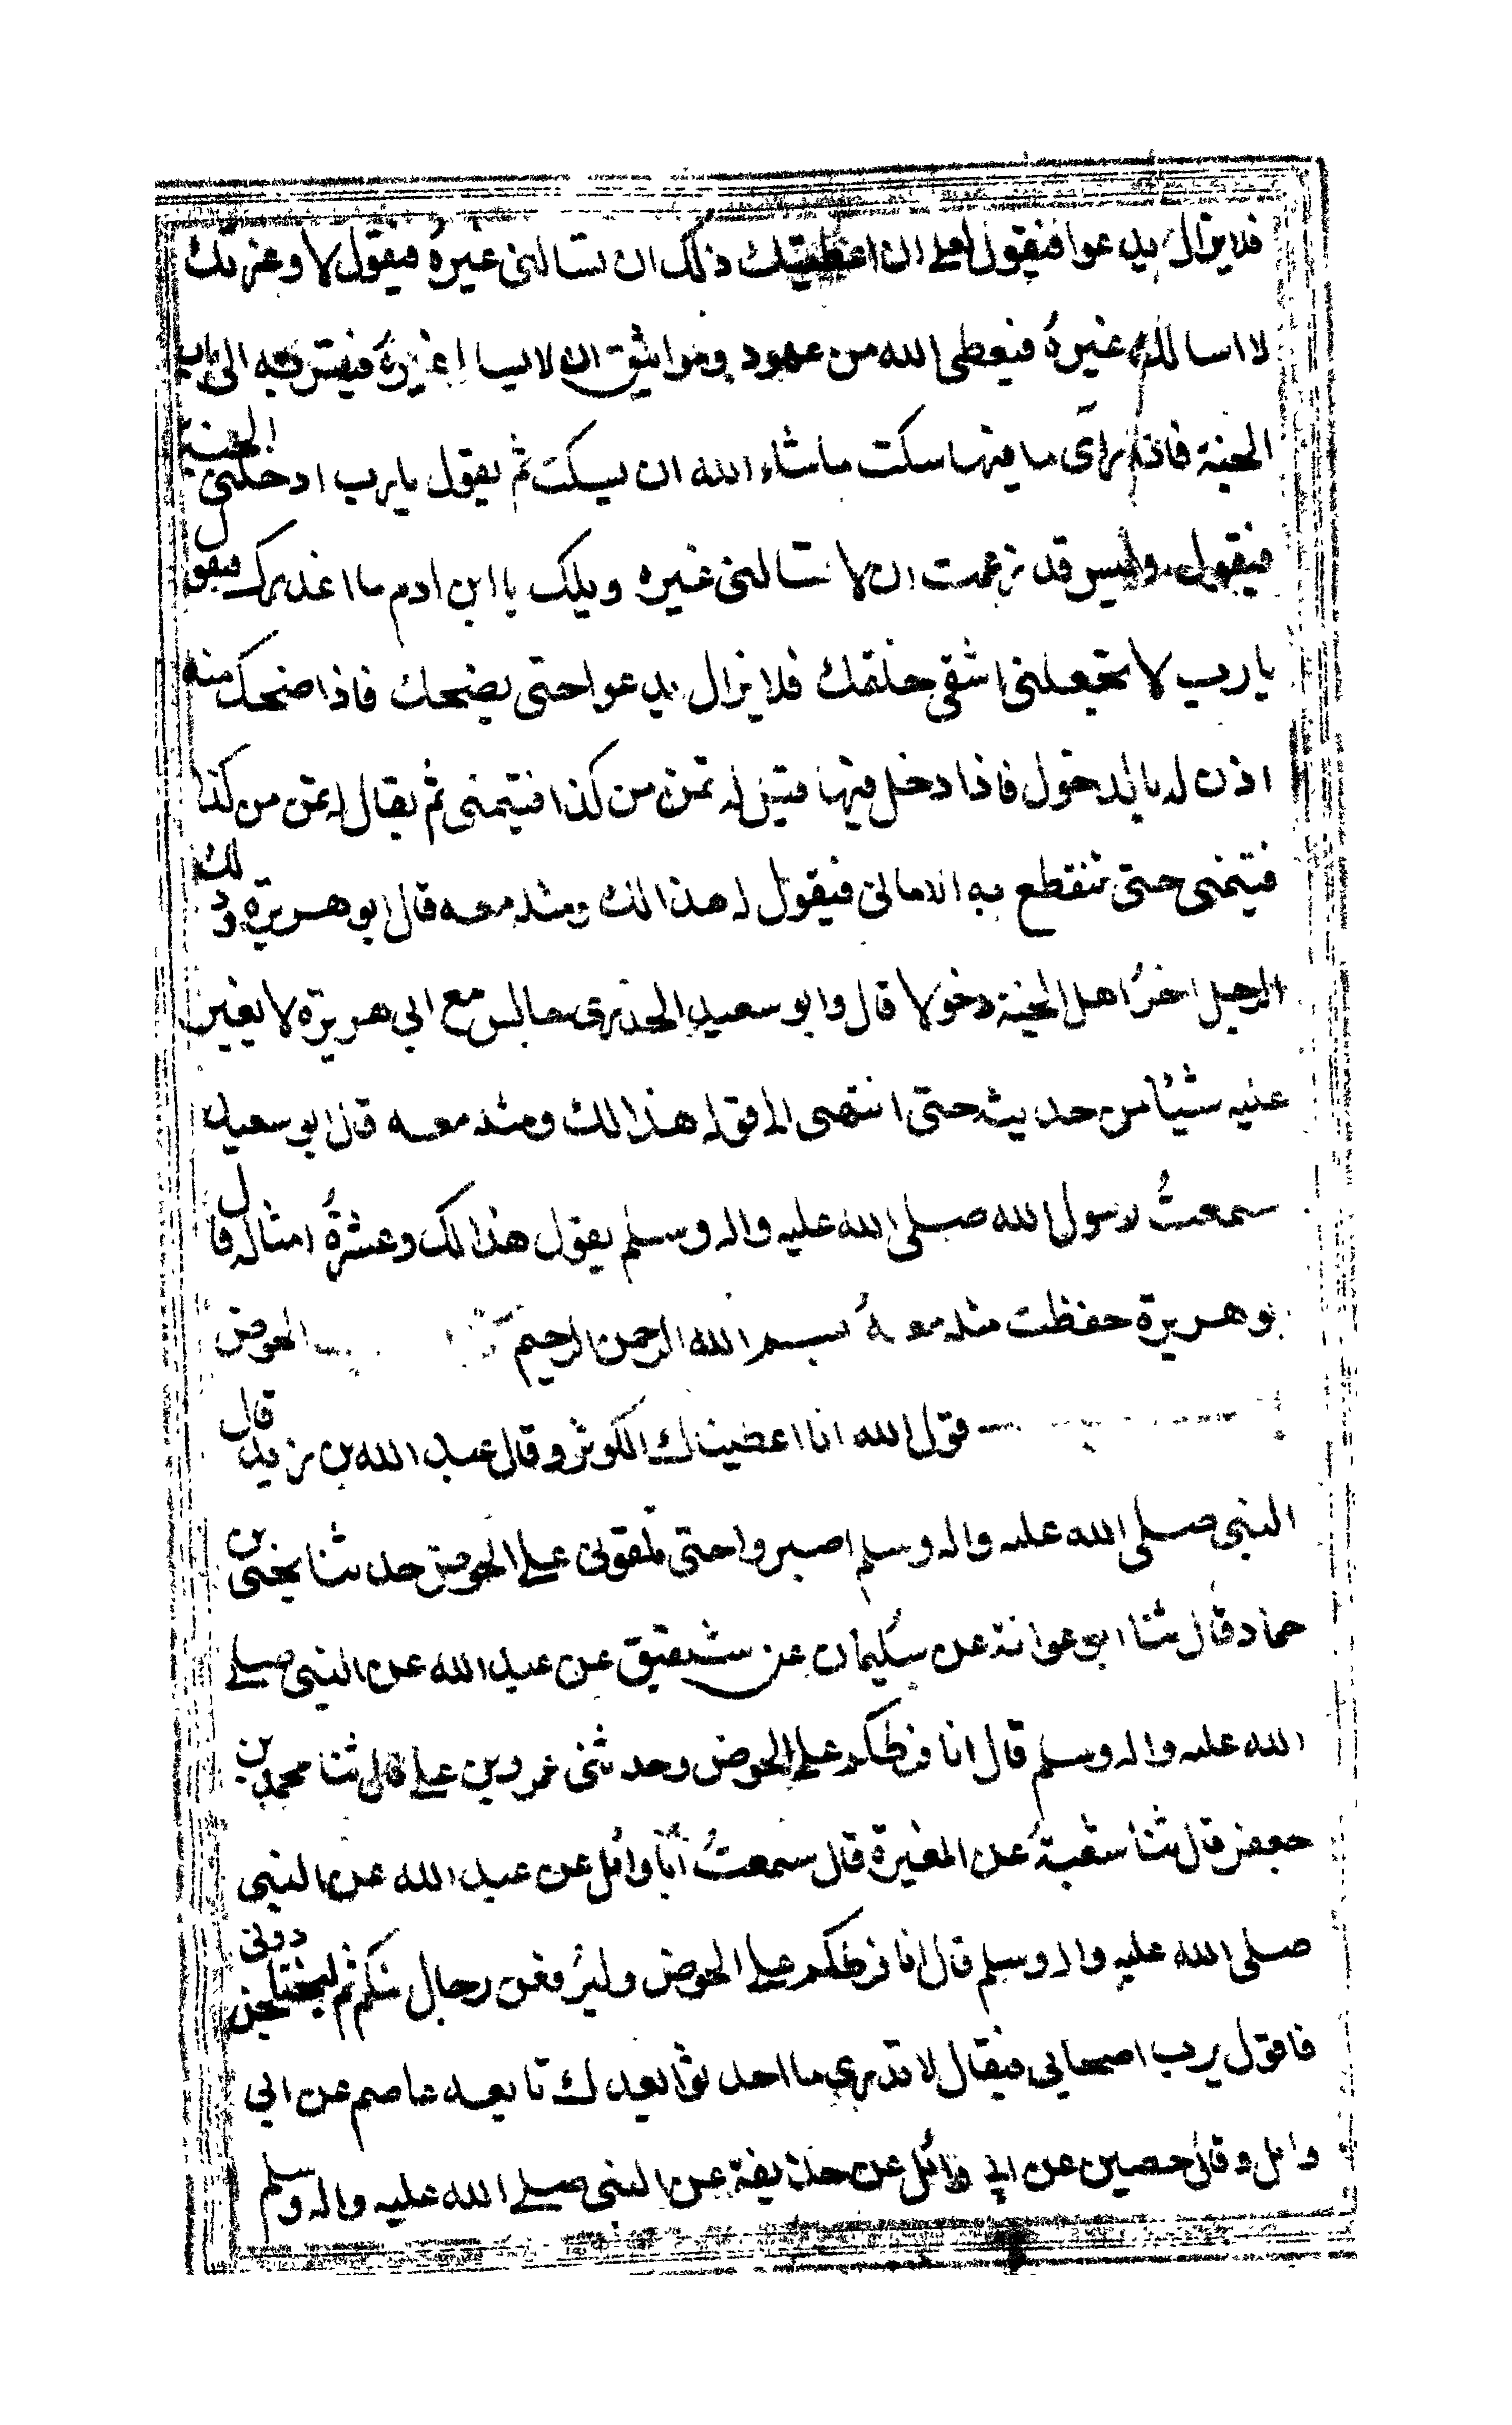 فلا يزال يدعوا فيقول لعلي ان اعطيتك ذلك ان تسالني غيره فيقول لا وعزتك
لا اسالك غيره فيعطي الله من عهود ومواثيق ان لا يسا غيره فيقربه الى باب
الجنة فاذا راى ما فيها سكت ما شاء الله ان يسكت ثم يقول يا رب ادخلني الجنة
فيقول وليس قد زعمت ان لا تسالني غيره ويلك يا ابن ادم ما اغدرك فيقول
يا رب لا تجعلني اشقى خلقك فلا يزال يدعوا حتى يضحك فاذا ضحك منه
اذن له بالدخول فاذا دخل فيها قيل له تمن من كذا فيتمنى ثم يقال له تمن من كذا
فيتمنى حتى تنقطع به الاماني فيقول له هذا لك ومثله معه قال ابو هريرة وذلك
الرجل اخر اهل الجنة دخولا قال وابو سعيد الخدري جالس مع ابي هريرة لا يغير
عليه شيئا من حديثه حتى انتهى الى قوله هذا لك ومثله معه قال ابو سعيد
سمعت رسول الله صلى الله عليه واله وسلم يقول هذا لك وعشرة امثاله قال
بو هريرة حفظت مثله معه بسم الله الرحمن الرحيم الحوض
قول الله انا اعطيناك الكوثر وقال عبد الله بن زيد قال
النبي صلى الله عليه واله وسلم اصبروا حتى تلقوني على الحوض حدثنا يحيى بن
حماد قال ثنا ابو عوانة عن سليمان عن شقيق عن عبد الله عن النبي صلى
الله عليه واله وسلم قال انا فرطكم على الحوض وحدثني عمرو بن علي قال ثنا محمد بن
جعفر قال ثنا شعبة عن المغيرة قال سمعت ابا وائل عن عبد الله عن النبي
صلى الله عليه واله وسلم قال انا فرطكم على الحوض وليرفعن رجال منكم ثم ليختلجن دوني
فاقول يرب اصحابي فيقال لا تدري ما احدثوا بعدك تابعه عاصم عن ابي
وائل وقال حصين عن ابي وائل عن حذيفة عن النبي صلى الله عليه واله وسلم